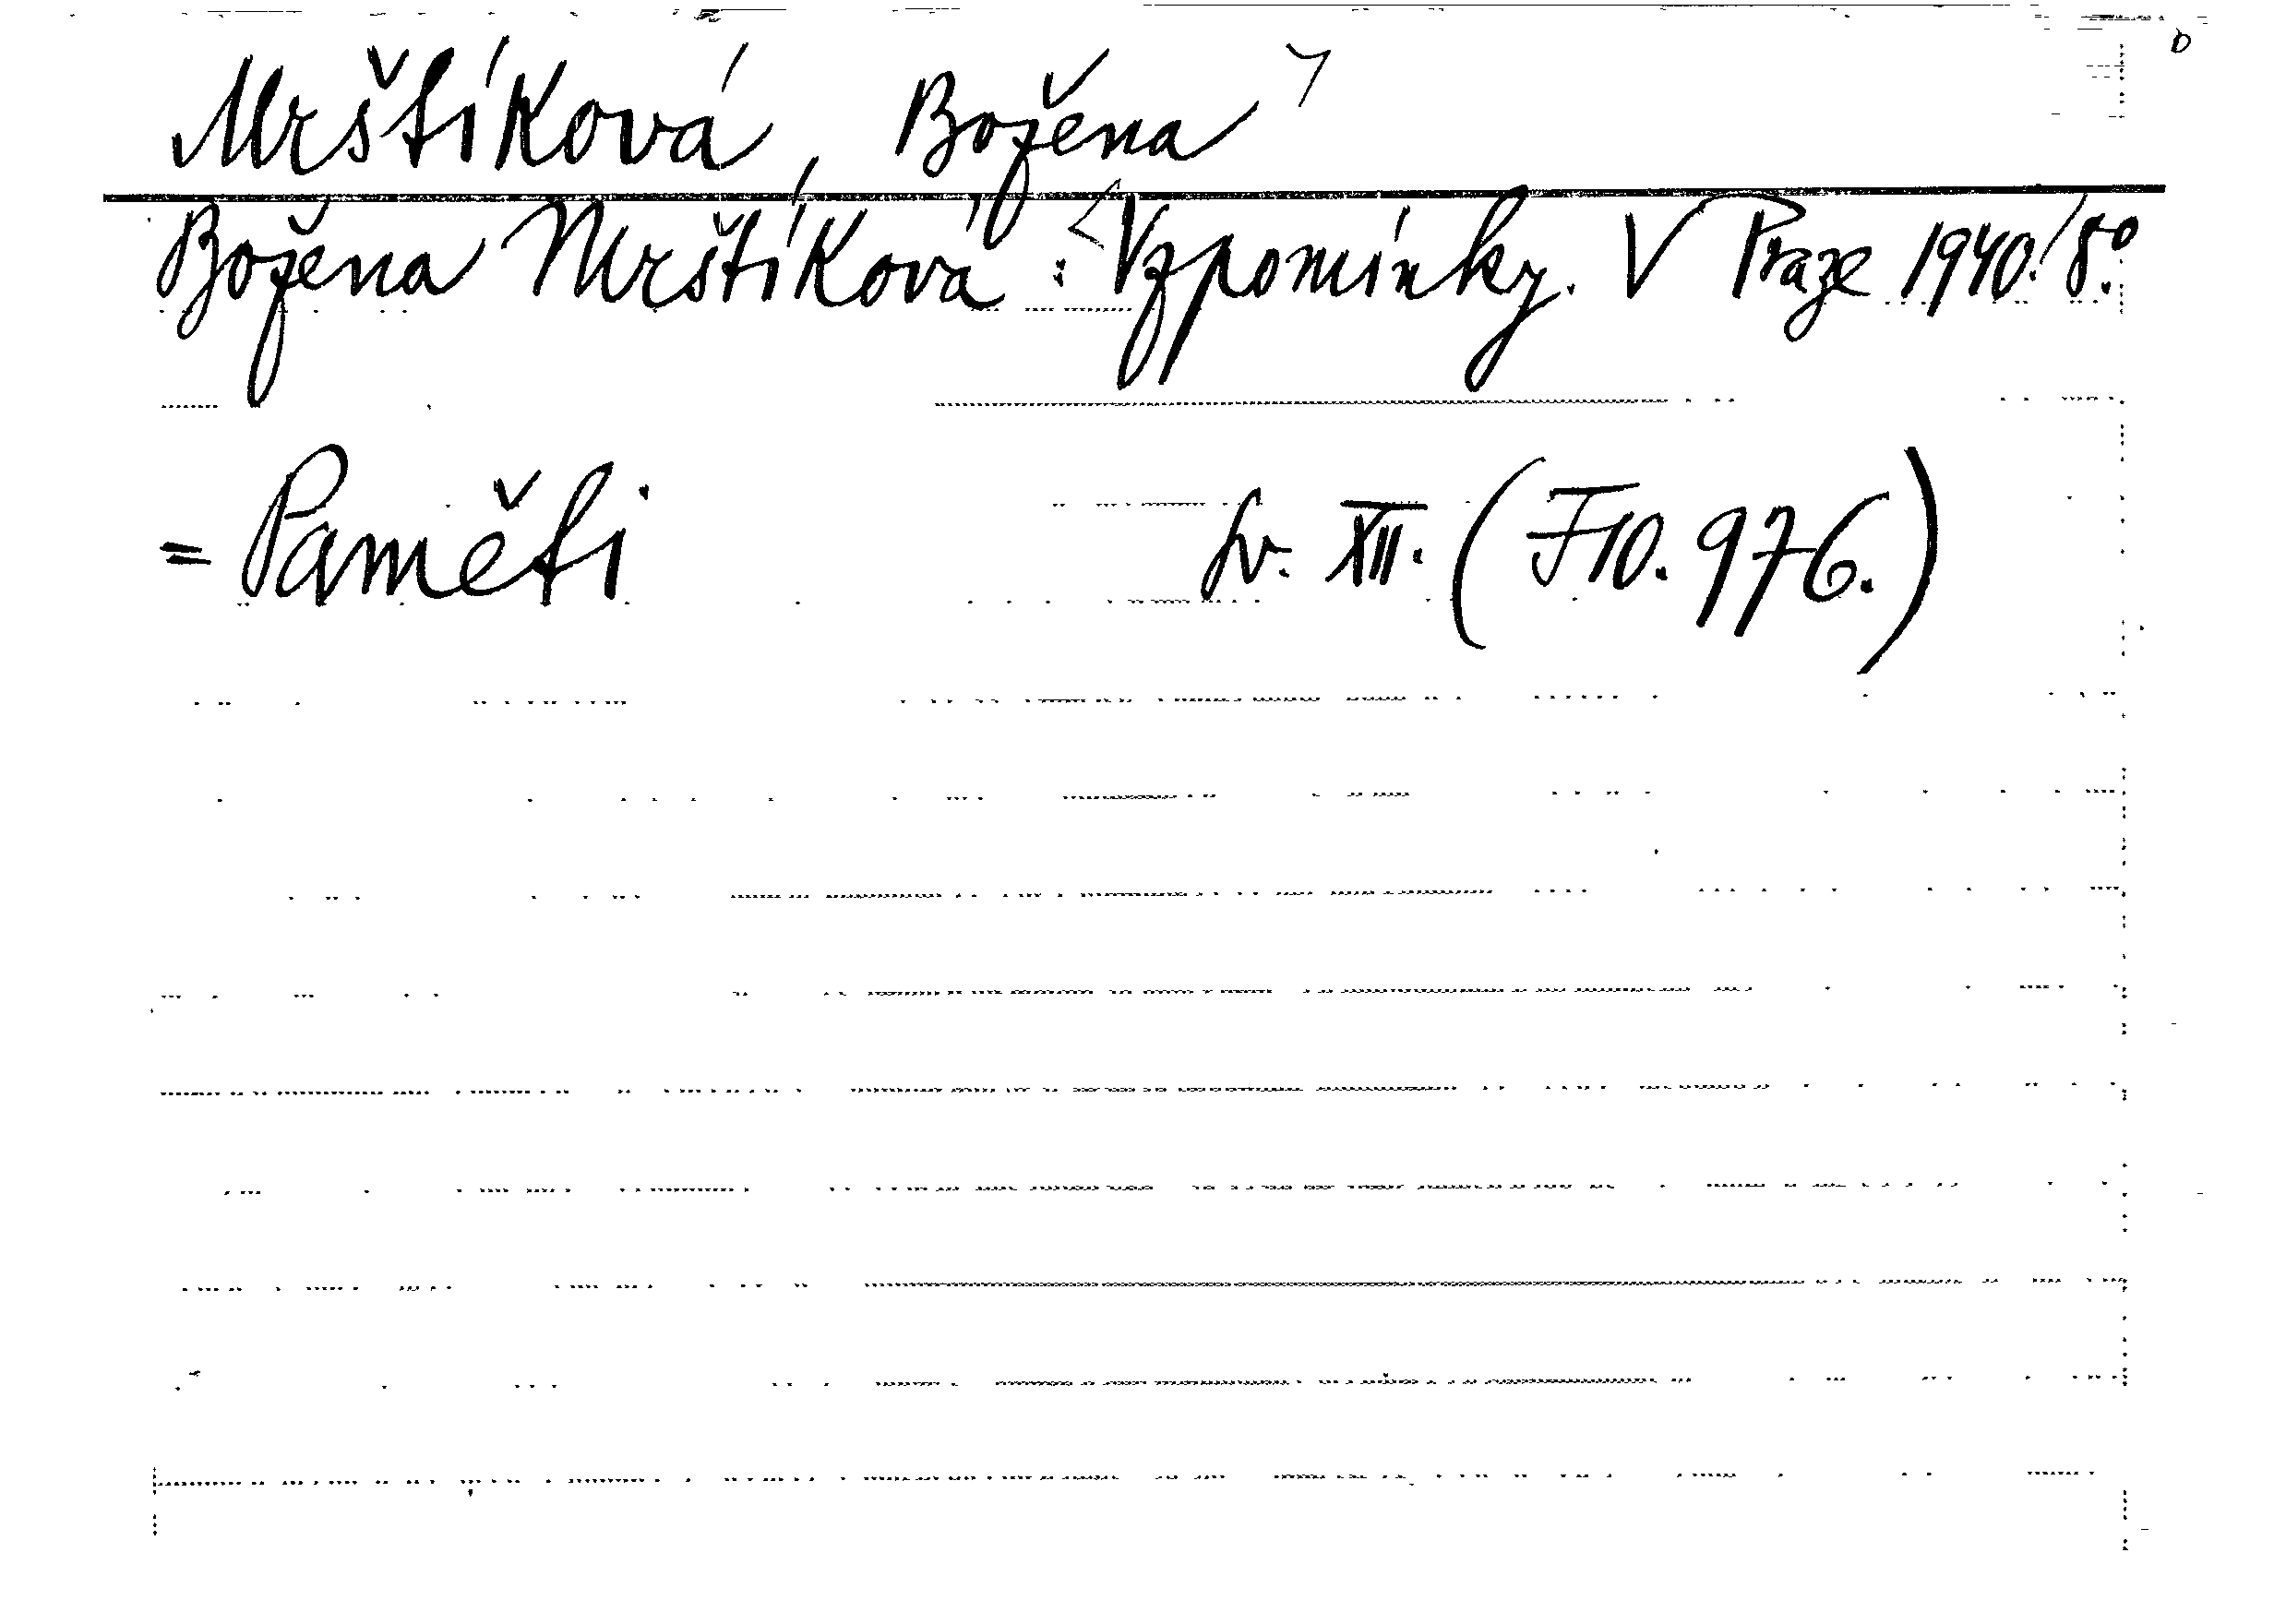 Mrštíková, Božena
Božena Mrštíková: Vzpomínky. V Praze 1940. 8°.
= Paměti sv. XII. (F 10.976.)